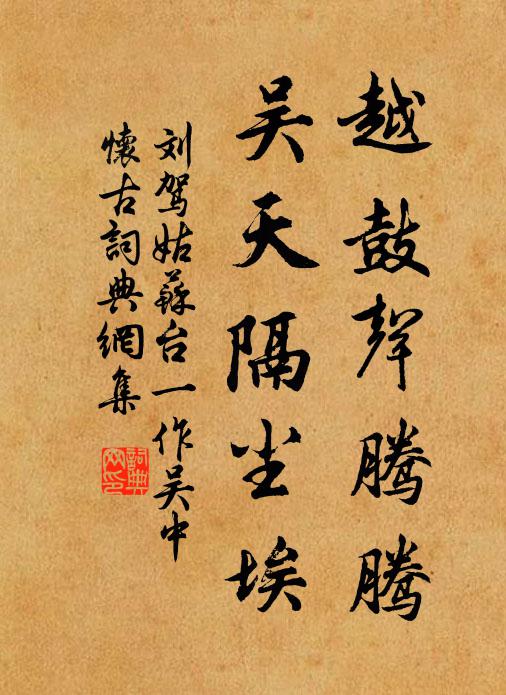 越鼓声腾腾
吴天隔尘埃
刘驾姑苏台一作吴中
怀古詞典網集
詞典网印